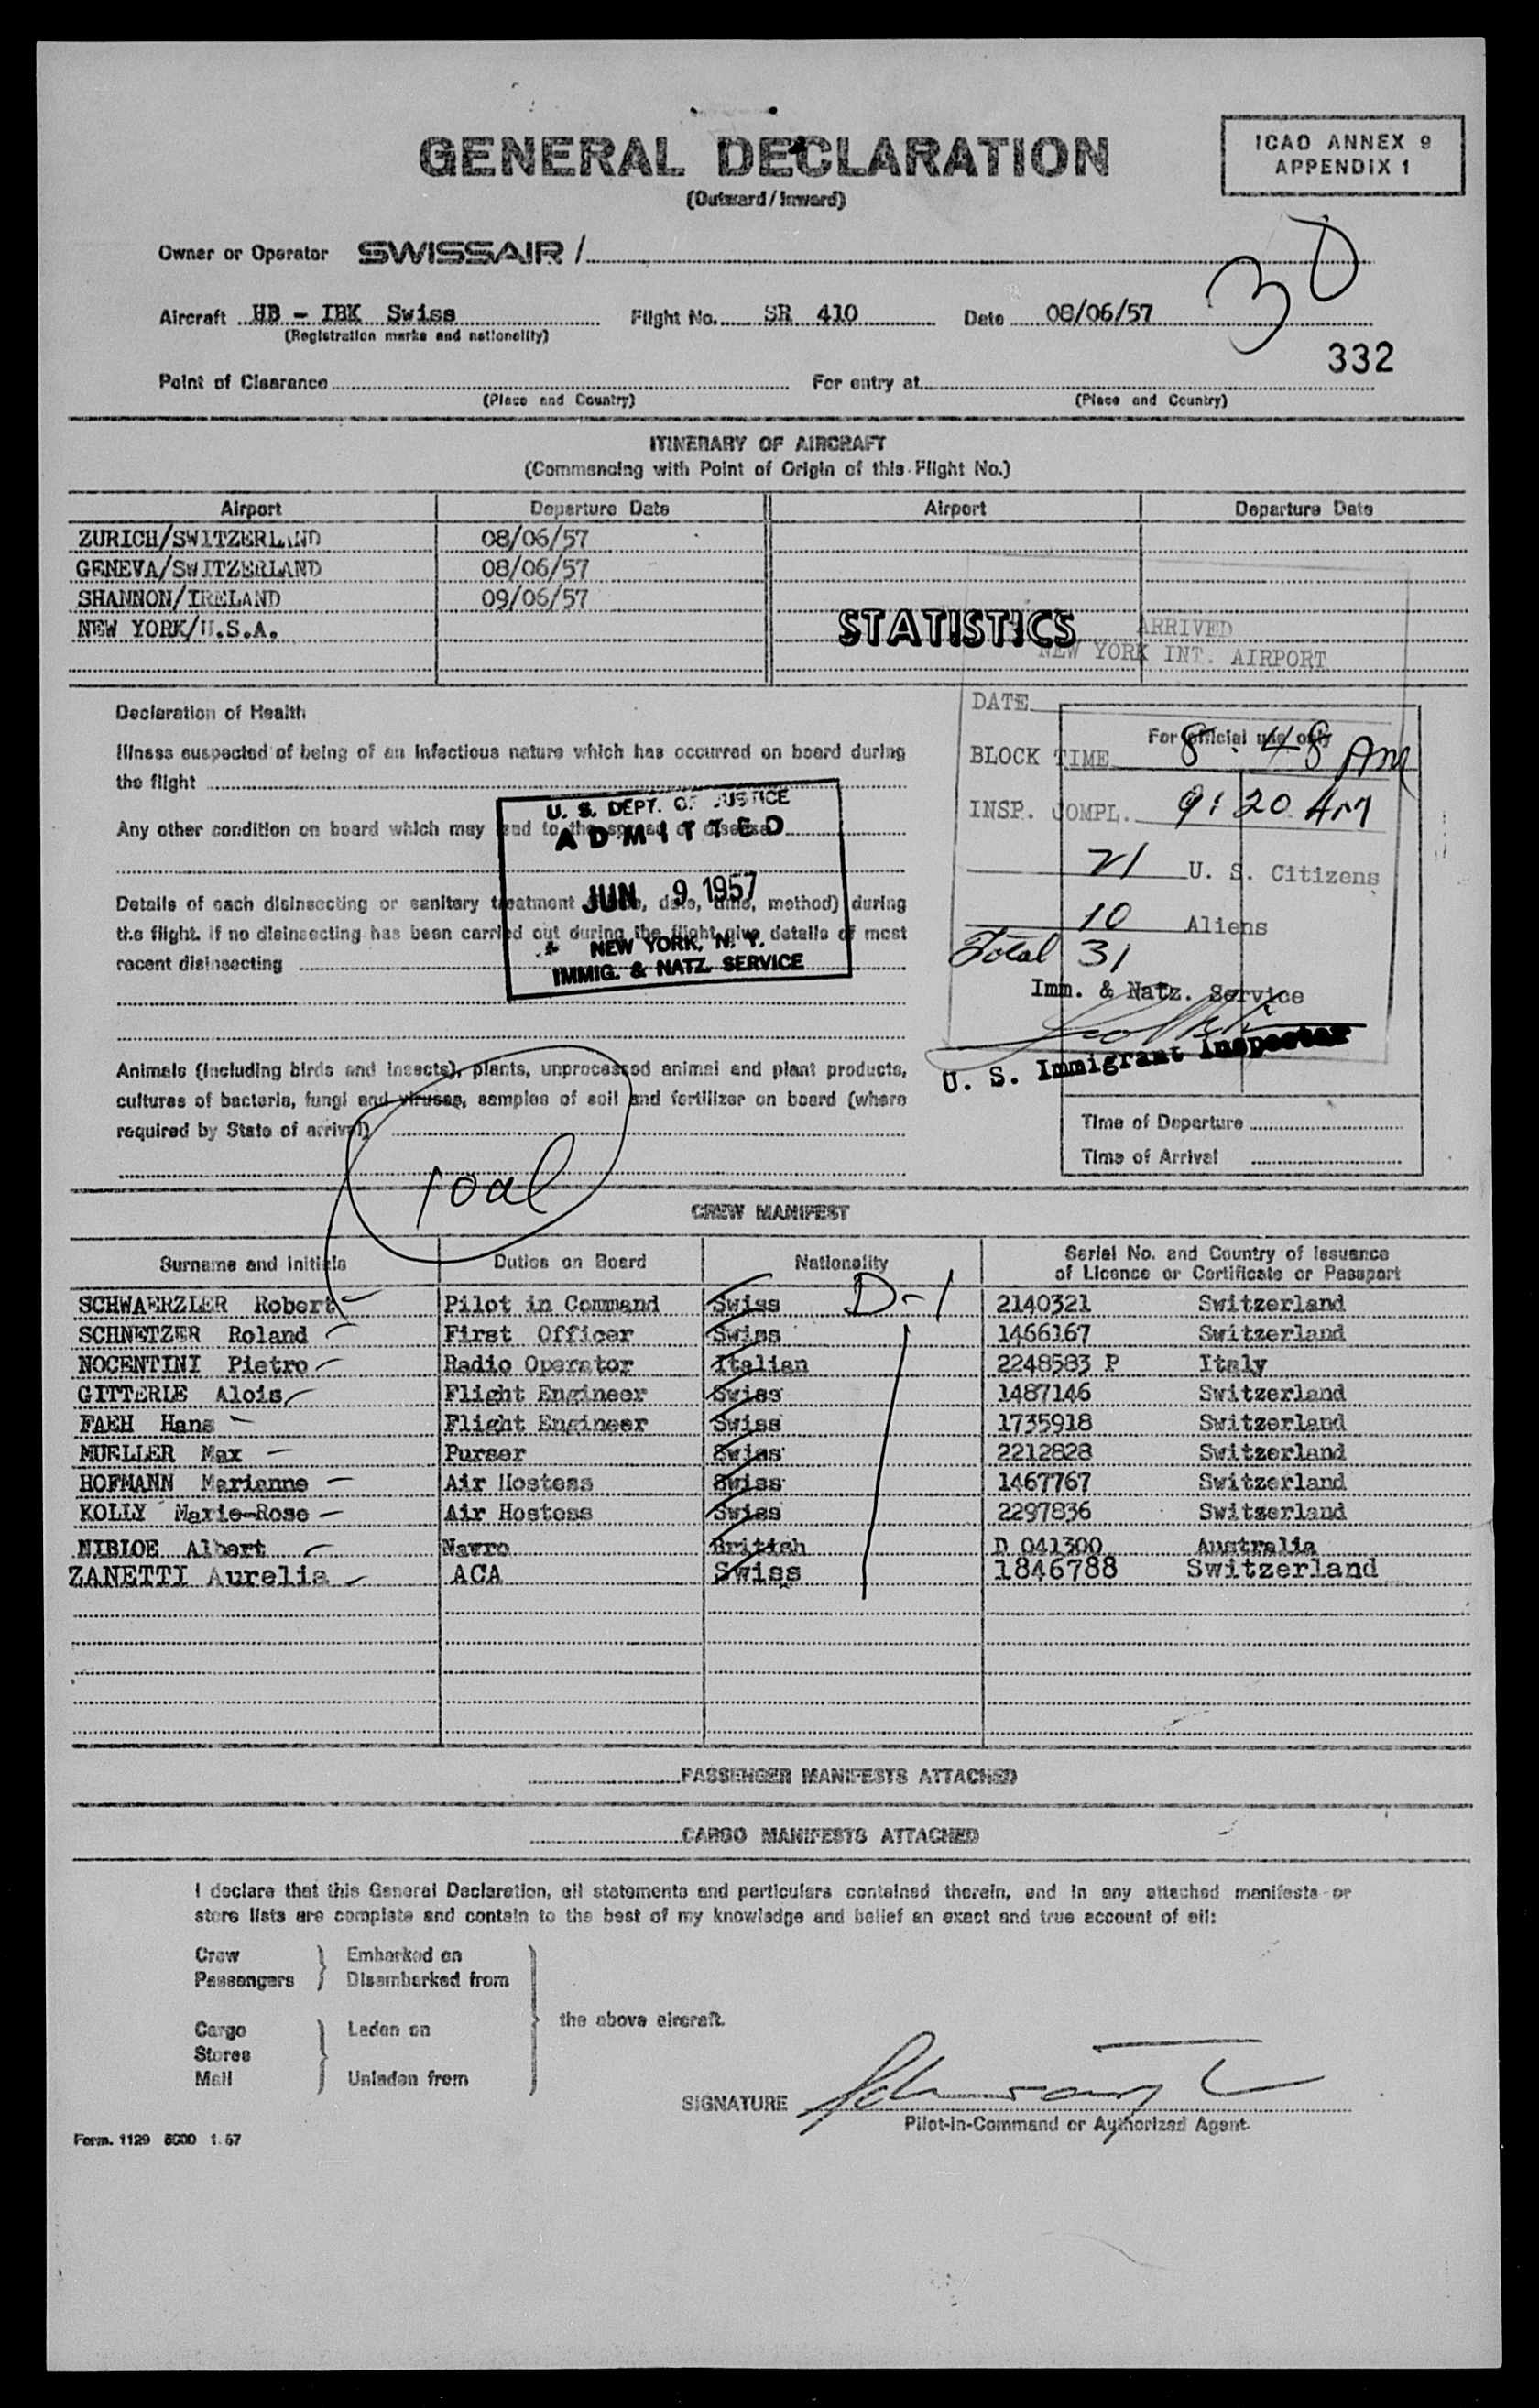 GENERAL DECLARATION
(Outward / Inward)
ICAO ANNEX 9
APPENDIX 1
Owner or Operator SWISSAIR /
30
Aircraft HB - IBK Swiss Flight No. SR 410 Date 08/06/57
(Registration marks and nationality)
332
Point of Clearance For entry at
(Place and Country) (Place and Country)
ITINERARY OF AIRCRAFT
(Commencing with Point of Origin of this Flight No.)
Airport Departure Date Airport Departure Date
ZURICH/SWITZERLAND 08/06/57
GENEVA/SWITZERLAND 08/06/57
SHANNON/IRELAND 09/06/57
NEW YORK/U.S.A.
STATISTICS
ARRIVED
NEW YORK INT. AIRPORT
DATE
For official use only
BLOCK TIME 8:48 AM
INSP. COMPL. 9:20 AM
21 U. S. Citizens
10 Aliens
Total 31
Imm. & Natz. Service
U. S. Immigrant Inspector
Time of Departure
Time of Arrival
Declaration of Health
Illness suspected of being of an infectious nature which has occurred on board during
the flight
Any other condition on board which may lead to the spread of disease
Details of each disinsecting or sanitary treatment (place, date, time, method) during
the flight. If no disinsecting has been carried out during the flight give details of most
recent disinsecting
U. S. DEPT. OF JUSTICE
ADMITTED
JUN 9 1957
NEW YORK, N. Y.
IMMIG. & NATZ. SERVICE
Animals (including birds and insects), plants, unprocessed animal and plant products,
cultures of bacteria, fungi and viruses, samples of soil and fertilizer on board (where
required by State of arrival)
CREW MANIFEST
Surname and initials Duties on Board Nationality Serial No. and Country of Issuance
of Licence or Certificate or Passport
D-1
SCHWAERZLER Robert Pilot in Command Swiss 2140321 Switzerland
SCHNETZER Roland First Officer Swiss 1466167 Switzerland
NOCENTINI Pietro Radio Operator Italian 2248583 P Italy
GITTERLE Alois Flight Engineer Swiss 1487146 Switzerland
FAEH Hans Flight Engineer Swiss 1735918 Switzerland
MUELLER Max Purser Swiss 2212828 Switzerland
HOFMANN Marianne Air Hostess Swiss 1467767 Switzerland
KOLLY Marie-Rose Air Hostess Swiss 2297836 Switzerland
NIBLOE Albert Navro British D 041300 Australia
ZANETTI Aurelia ACA Swiss 1846788 Switzerland
PASSENGER MANIFESTS ATTACHED
CARGO MANIFESTS ATTACHED
I declare that this General Declaration, all statements and particulars contained therein, and in any attached manifests or
store lists are complete and contain to the best of my knowledge and belief an exact and true account of all:
Crew
Passengers
Embarked on
Disembarked from
Cargo
Stores
Mail
Laden on
Unladen from
the above aircraft.
SIGNATURE
Pilot-in-Command or Authorized Agent
Form. 1129 5000 1. 57